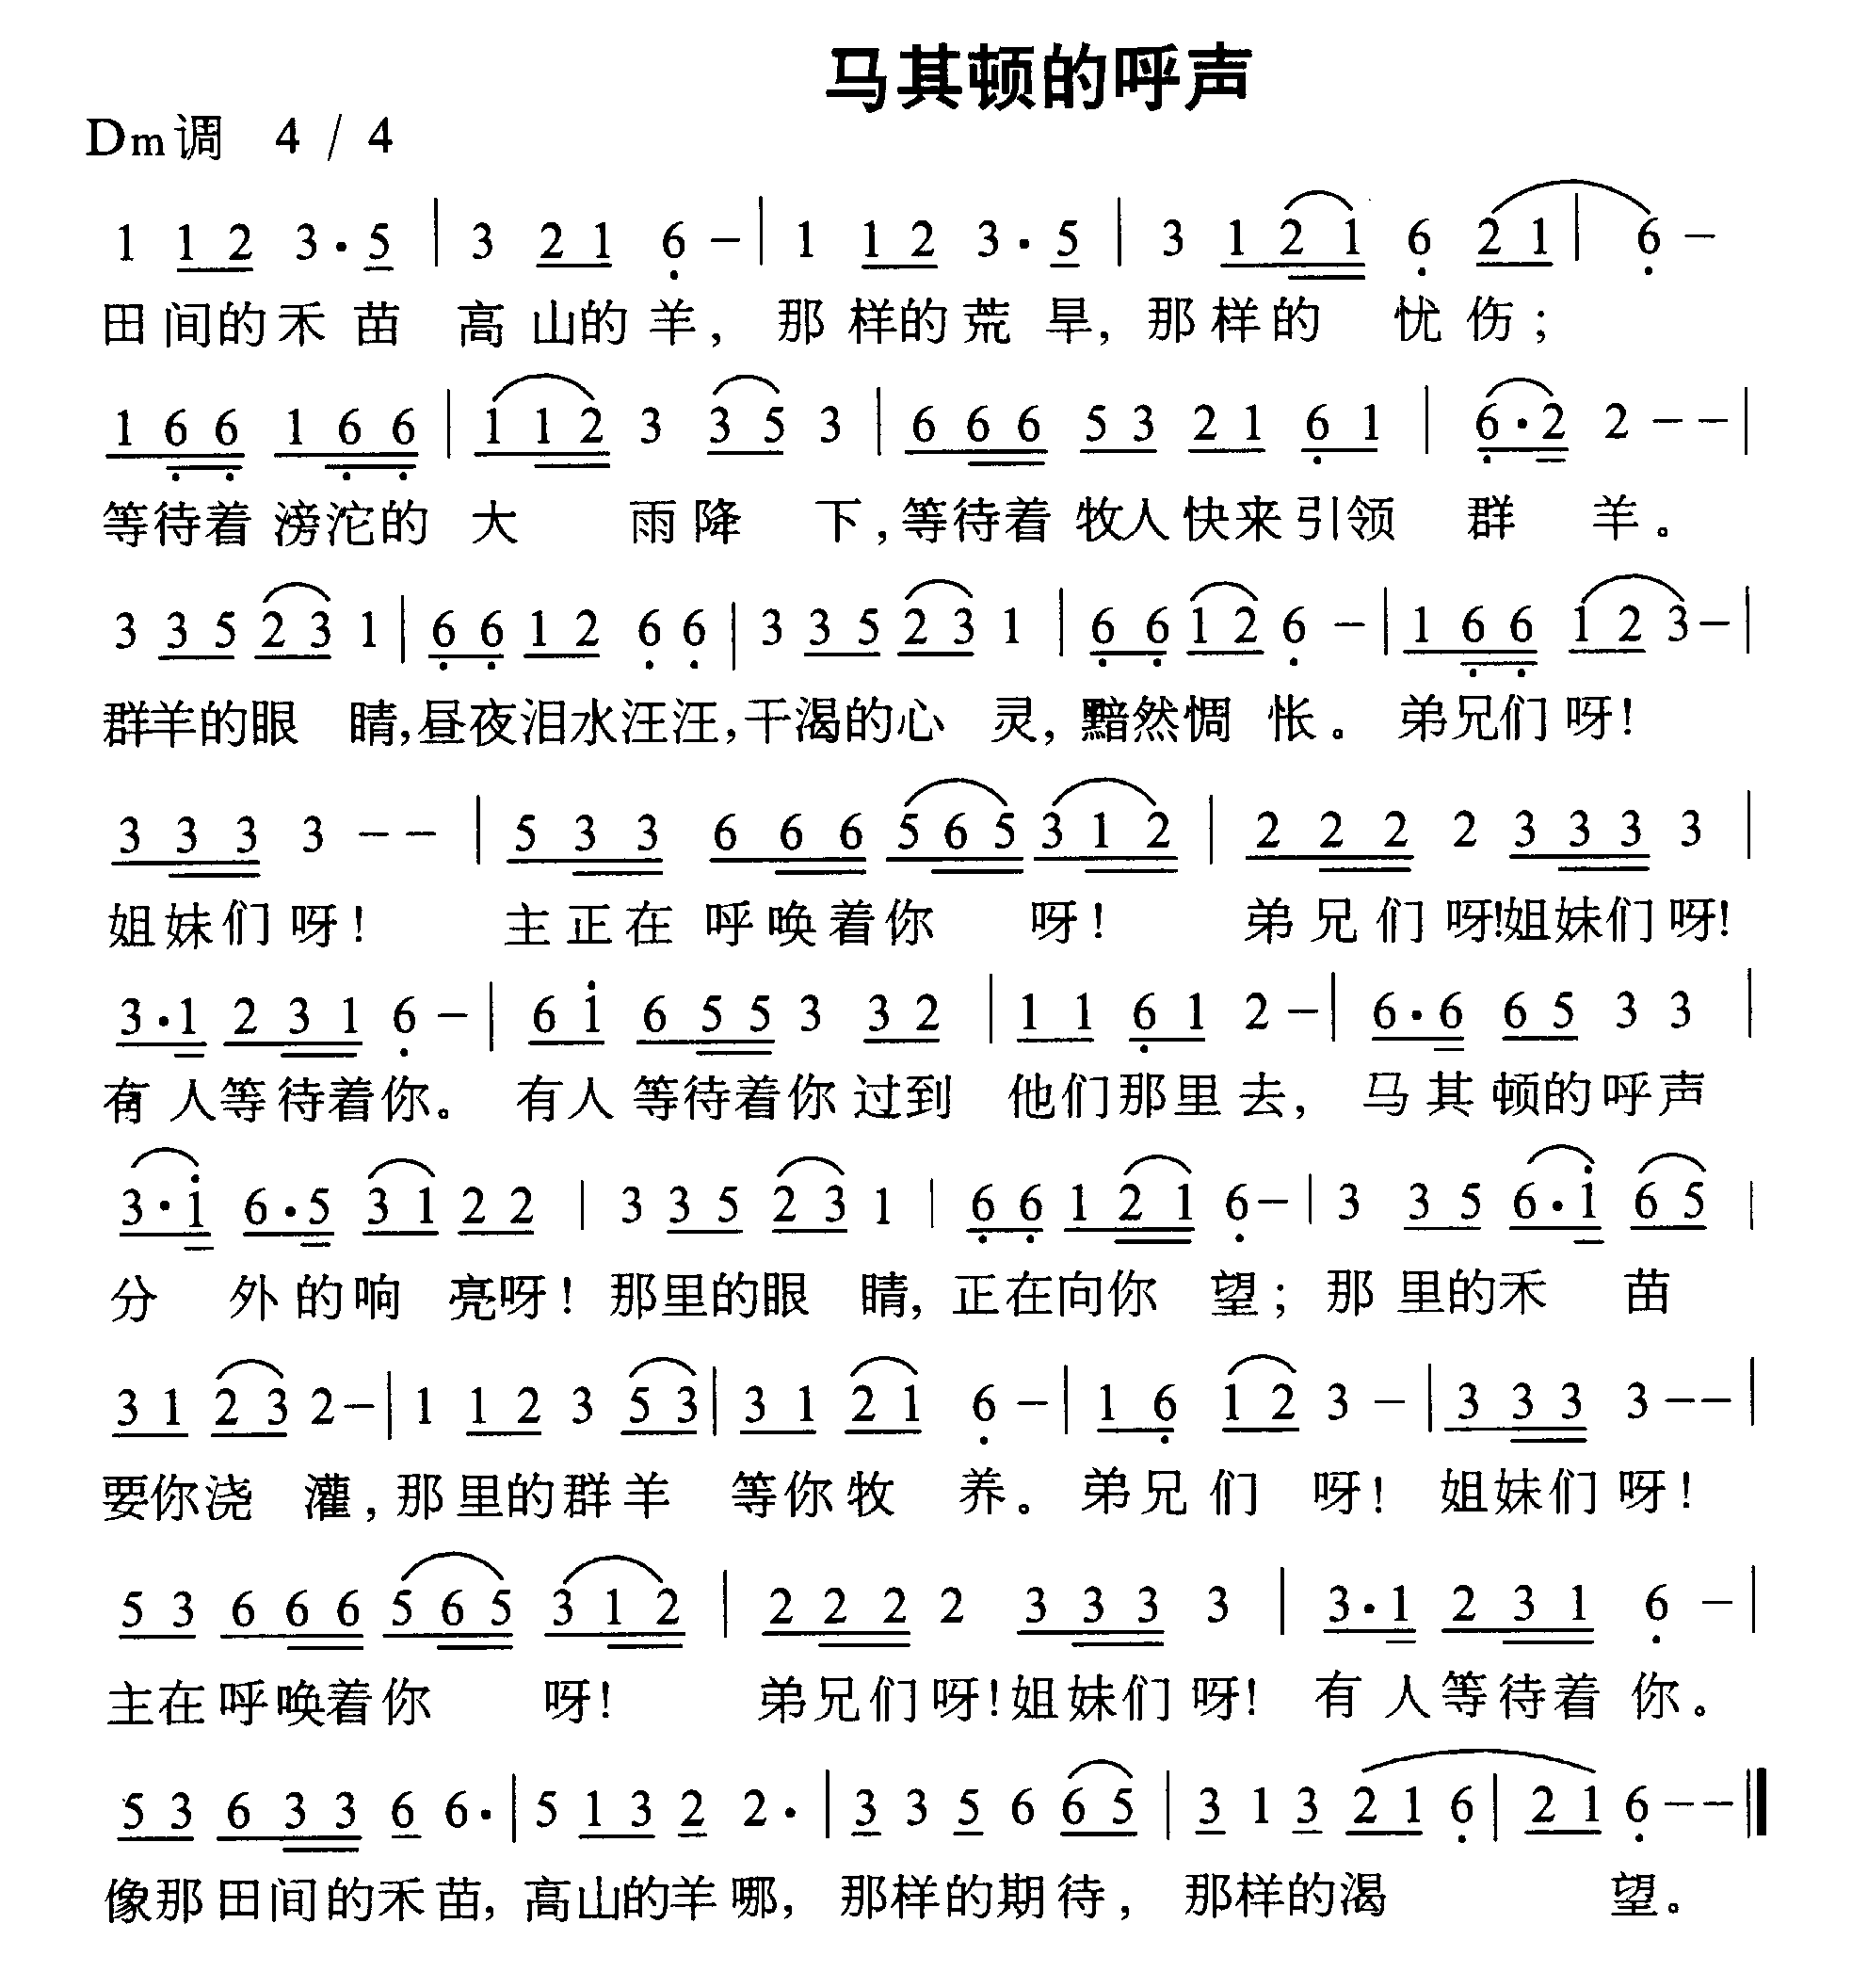 马其顿的呼声
Dm调 4 / 4
1 1 2 3 · 5 | 3 2 1 6 – | 1 1 2 3 · 5 | 3 1 2 1 6 2 1 | 6 –
田间的禾苗 高山的羊, 那样的荒旱, 那样的 忧伤;
1 6 6 1 6 6 | 1 1 2 3 3 5 3 | 6 6 6 5 3 2 1 6 1 | 6 · 2 2 – – |
等待着滂沱的 大 雨降 下, 等待着牧人快来引领 群 羊。
3 3 5 2 3 1 | 6 6 1 2 6 6 | 3 3 5 2 3 1 | 6 6 1 2 6 – | 1 6 6 1 2 3 – |
群羊的眼 睛, 昼夜泪水汪汪, 干渴的心 灵, 黯然惆 怅。 弟兄们 呀!
3 3 3 3 – – | 5 3 3 6 6 6 5 6 5 3 1 2 | 2 2 2 2 3 3 3 3 |
姐妹们呀! 主正在 呼唤着你 呀! 弟兄们呀!姐妹们呀!
3 · 1 2 3 1 6 – | 6 i 6 5 5 3 3 2 | 1 1 6 1 2 – | 6 · 6 6 5 3 3 |
有人等待着你。 有人等待着你过到 他们那里去, 马其顿的呼声
3 · i 6 · 5 3 1 2 2 | 3 3 5 2 3 1 | 6 6 1 2 1 6 – | 3 3 5 6 · i 6 5 |
分 外的响 亮呀! 那里的眼 睛, 正在向你 望; 那里的禾 苗
3 1 2 3 2 – | 1 1 2 3 5 3 | 3 1 2 1 6 – | 1 6 1 2 3 – | 3 3 3 3 – – |
要你浇 灌, 那里的群羊 等你牧 养。 弟兄们 呀! 姐妹们呀!
5 3 6 6 6 5 6 5 3 1 2 | 2 2 2 2 3 3 3 3 | 3 · 1 2 3 1 6 – |
主在呼唤着你 呀! 弟兄们呀!姐妹们呀! 有人等待着 你。
5 3 6 3 3 6 6 · | 5 1 3 2 2 · | 3 3 5 6 6 5 | 3 1 3 2 1 6 | 2 1 6 – – ‖
像那田间的禾苗, 高山的羊哪, 那样的期待, 那样的渴 望。